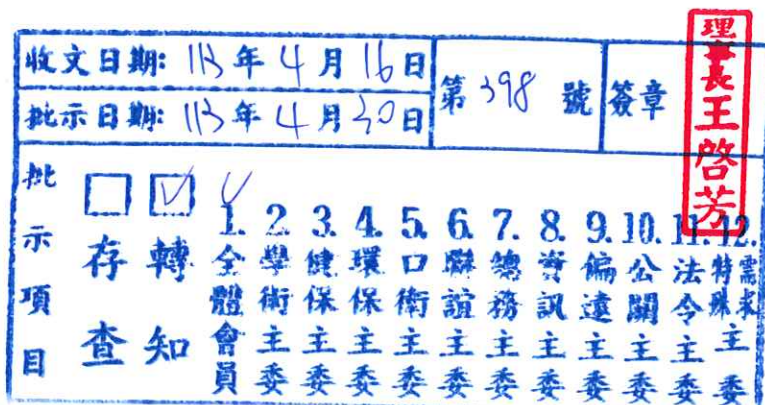 收文日期: 113年4月16日
批示日期: 113年4月30日
第398號
簽章
理事長王啓芳
批示項目
☐存查
☑轉知
✓1.全體會員
2.學術主委
3.健保主委
4.環保主委
5.口衛主委
6.聯誼主委
7.總務主委
8.資訊主委
9.偏遠主委
10.公關主委
11.法令主委
12.特殊需求主委